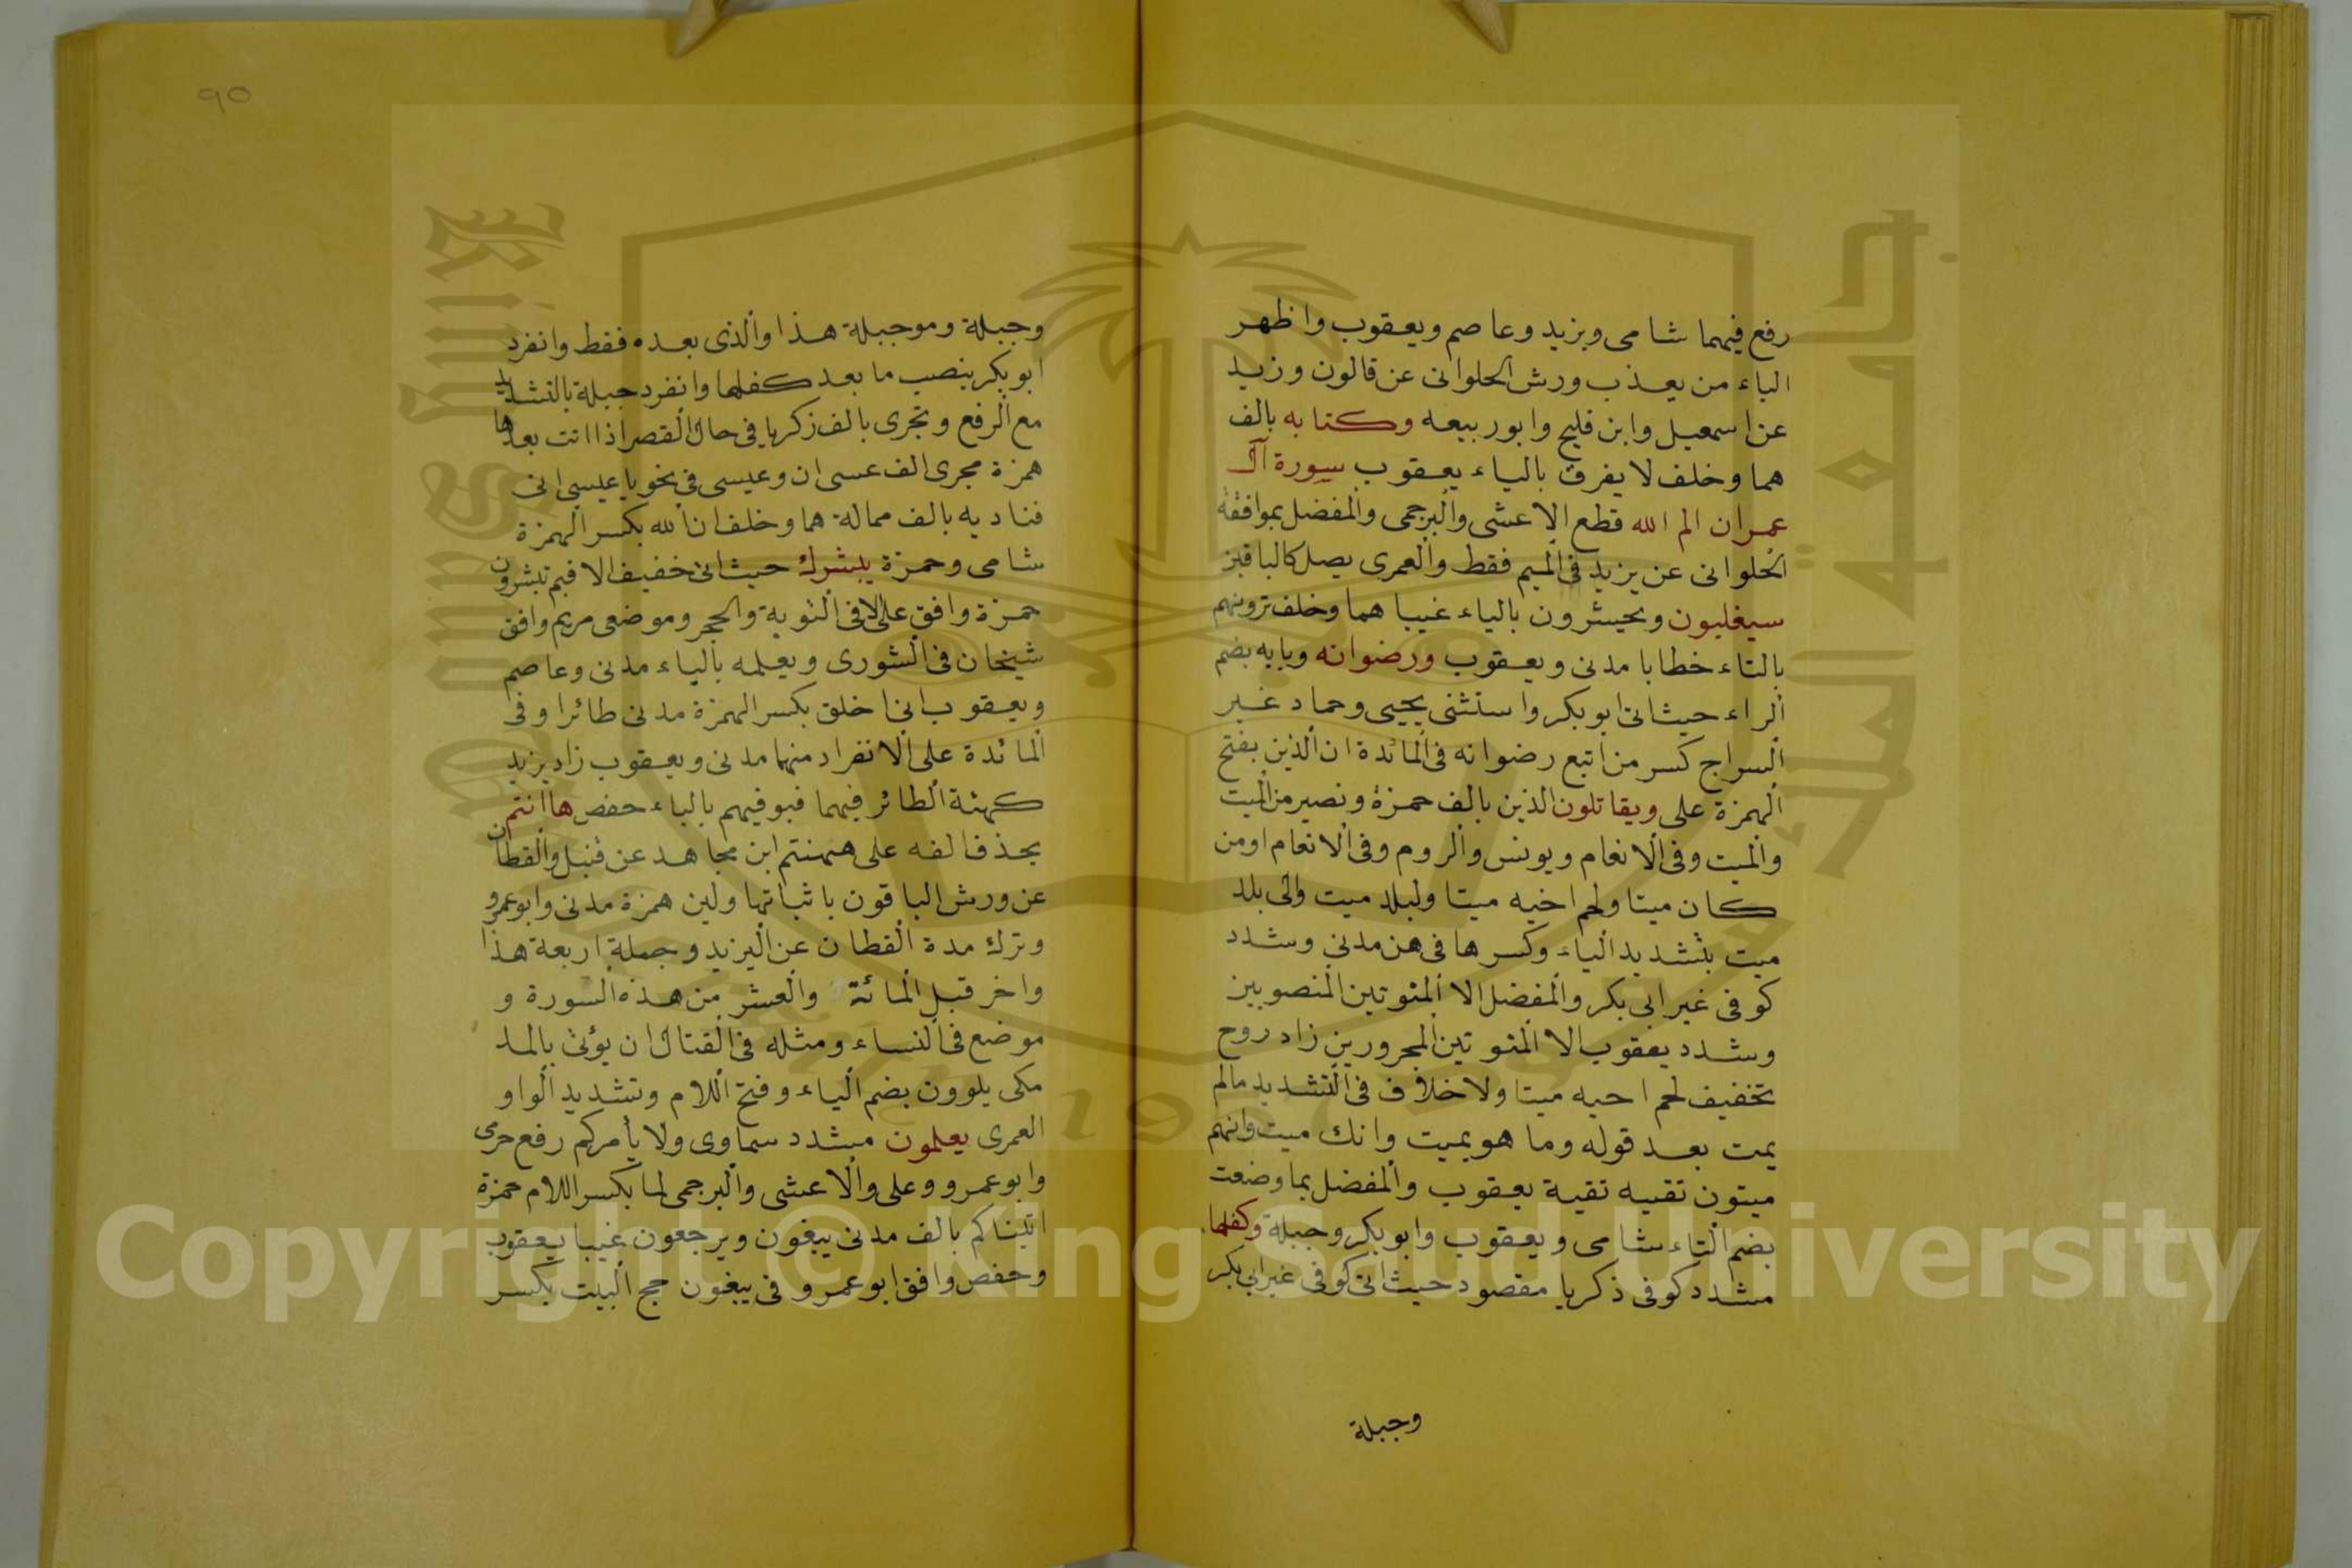 رفع فيهما شامى ويزيد وعاصم ويعقوب واظهر
الباء من يعذب ورش الحلوانى عن قالون وزيد
عن اسمعيل وابن فليح وابو ربيعه وكتابه بالف
هما وخلف لا يفرق بالياء يعقوب سورة آل
عمران الم الله قطع الاعشى والبرجمى والمفضل بموافقة
الحلوانى عن يزيد فى الميم فقط والعمرى يصل كالباقين
سيغلبون ويحيشرون بالياء غيبا هما وخلف ترونهم
بالتاء خطابا مدنى ويعقوب ورضوانه وبابه بضم
الراء حيث اتى ابو بكر واستثنى يحيى وحماد غير
السراج كسر من اتبع رضوانه فى المائدة ان الذين بفتح
الهمزة على ويقاتلون الذين بالف حمزة ونصير من الميت
والميت وفى الانعام ويونس والروم وفى الانعام اومن
كان ميتا ولحم اخيه ميتا ولبلد ميت والى بلد
ميت بتشديد الياء وكسرها فى هن مدنى وشدد
كوفى غير ابى بكر والمفضل الا المنوتين المنصوبين
وشدد يعقوب الا المنوتين المجرورين زاد روح
تخفيف لحم احيه ميتا ولا خلاف فى التشديد مالم
يمت بعد قوله وما هو بميت وانك ميت وانهم
ميتون تقيه تقية يعقوب والمفضل بما وضعت
بضم التاء شامى ويعقوب وابو بكر وجبلة وكفلها
مشدد كوفى زكريا مقصود حيث اتى كوفى غير ابى بكر
وجبلة
90
وجبلة وموجبلة هذا والذى بعده فقط وانفرد
ابو بكر بنصب ما بعد كفلها وانفرد جبلة بالتشديد
مع الرفع وتجرى بالف زكريا فى حال القصر اذا اتت بعدها
همزة مجرى الف عسى ان وعيسى فى نحو يا عيسى انى
فناديه بالف ممالة هما وخلف ان الله بكسر الهمزة
شامى وحمزة يبشرك حيث اتى خفيف الا فبم تبشرون
حمزة وافق على الا فى التوبة والحجر وموضعى مريم وافق
شيخان فى الشورى ويعلمه بالياء مدنى وعاصم
ويعقوب انى اخلق بكسر الهمزة مدنى طائرا وفى
المائدة على الانفراد منهما مدنى ويعقوب زاد يزيد
كهئة الطائر فيهما فيوفيهم بالياء حفص هاانتم
بحذف الفه على همنتم ابن مجاهد عن قنبل والقطان
عن ورش الباقون باثباتها ولين همزة مدنى وابو عمرو
وترك مدة القطان عن اليزيد وجملة اربعة هذا
واخر قبل المائة والعشر من هذه السورة و
موضع فى النساء ومثله فى القتال ان يؤتى بالمد
مكى يلوون بضم الياء وفتح اللام وتشديد الواو
العمرى يعلمون مشدد سماوى ولا يأمركم رفع حرمى
وابو عمرو وعلى والاعشى والبرجمى لما بكسر اللام حمزة
اتيناكم بالف مدنى يبغون ويرجعون غيبا يعقوب
وحفص وافق ابو عمرو فى يبغون حج البيت بكسر
جامعة الملك
Copyright © King Saud University